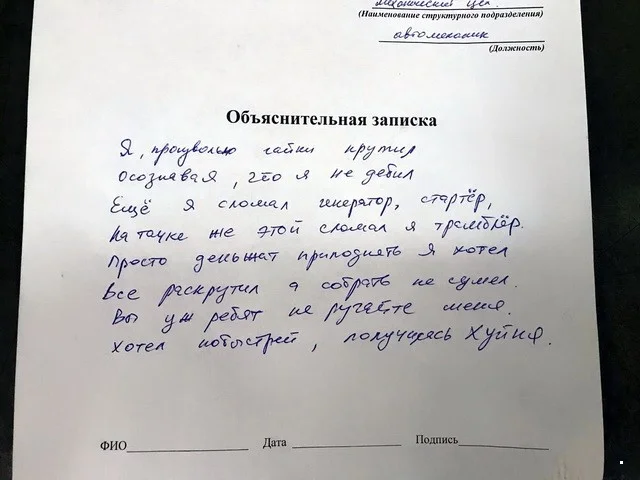 механический цех.
(Наименование структурного подразделения)
автомеханик
(Должность)
Объяснительная записка
Я, произвольно гайки крутил
осознавая, что я не дебил
Ещё я сломал генератор, стартёр,
На тачке же этой сломал я трамблёр.
Просто деньжат приподнять я хотел
Все раскрутил а собрать не сумел.
Вы уж ребят не ругайте меня.
Хотел побыстрей, получилась хуйня.
ФИО Дата Подпись